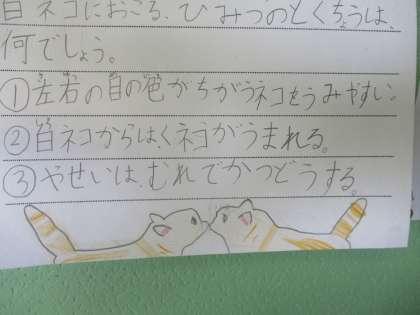 白ネコにおこる、ひみつのとくちょうは、
何でしょう。
①左右の目の色がちがうネコをうみやすい。
②白ネコからはくネコがうまれる。
③やせいは、むれでかつどうする。